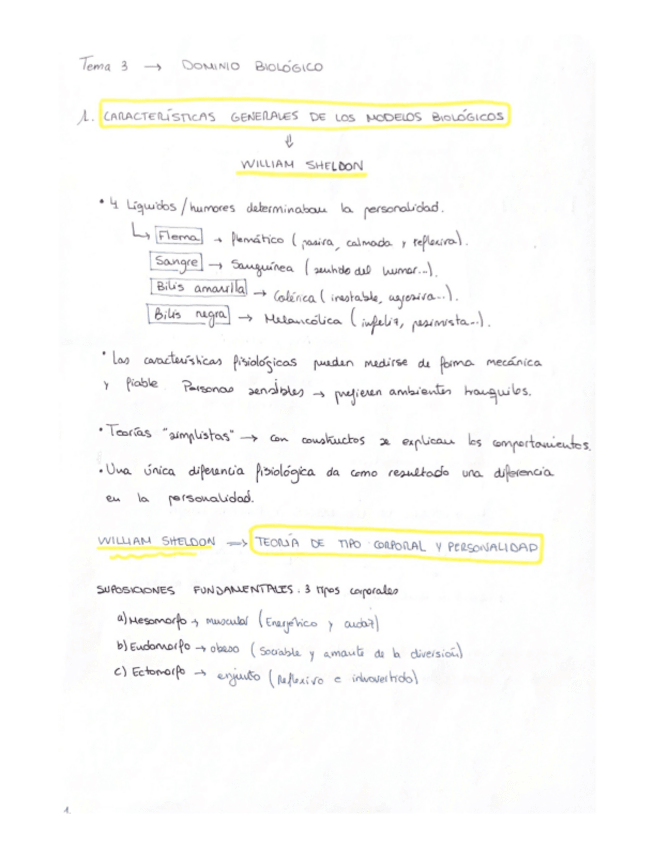 Tema 3 → DOMINIO BIOLÓGICO
1. CARACTERÍSTICAS GENERALES DE LOS MODELOS BIOLÓGICOS
⇓
WILLIAM SHELDON
• 4 Líquidos/humores determinaban la personalidad.
↳ Flema → flemático (pasiva, calmada y reflexiva).
Sangre → Sanguínea (sentido del humor...).
Bilis amarilla → Colérica (inestable, agresiva...).
Bilis negra → Melancólica (infeliz, pesimista...).
• Las características fisiológicas pueden medirse de forma mecánica
y fiable Personas sensibles → prefieren ambientes tranquilos.
• Teorías "simplistas" → con constructos se explican los comportamientos.
• Una única diferencia fisiológica da como resultado una diferencia
en la personalidad.
WILLIAM SHELDON ⇒ TEORÍA DE TIPO CORPORAL Y PERSONALIDAD
SUPOSICIONES FUNDAMENTALES. 3 tipos corporales
a) Mesomorfo → muscular (Energético y audaz)
b) Endomorfo → obeso (Sociable y amante de la diversión)
c) Ectomorfo → enjuto (Reflexivo e introvertido)
1